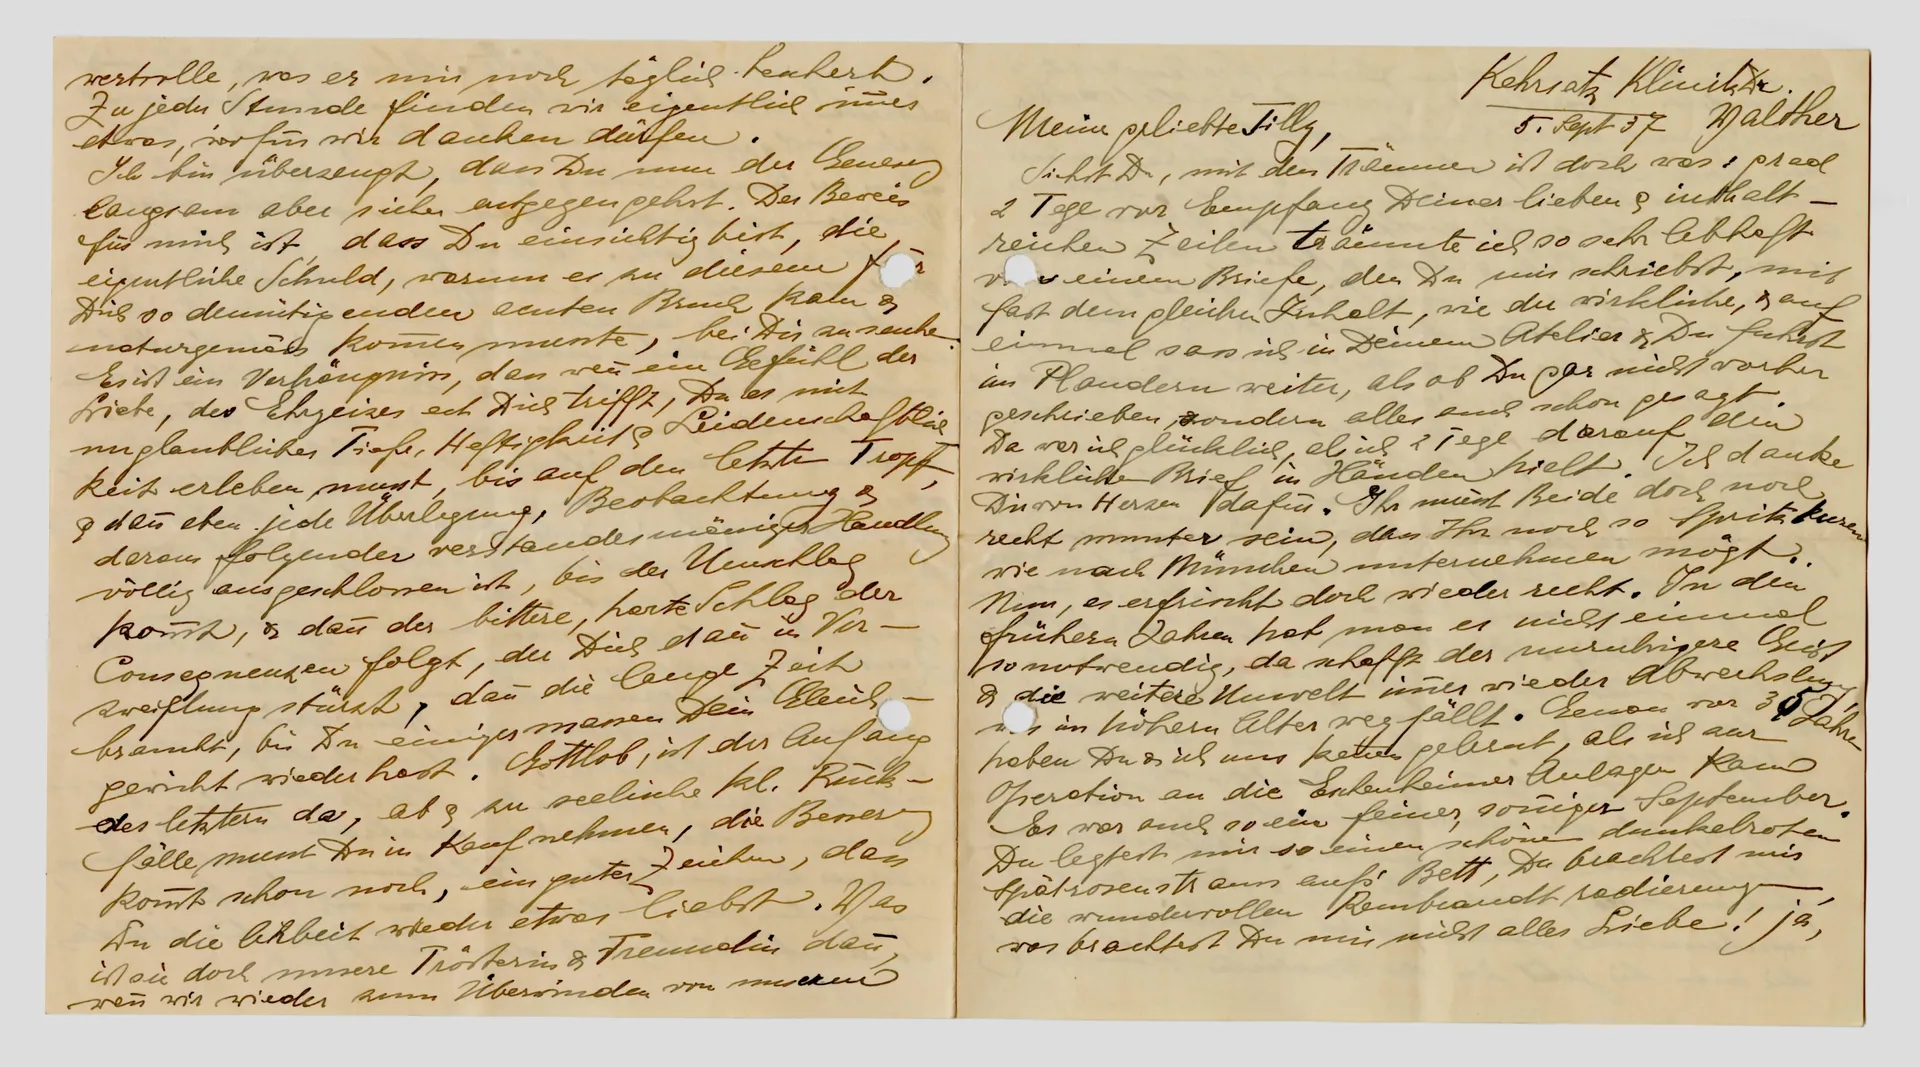 Kehrsatz Klinik Dr.
Walther
5. Sept 37
Meine geliebte Tilly,
Siehst Du, mit den Träumen ist doch was, grad
2 Tage vor Empfang Deiner lieben & inhalt-
reichen Zeilen träumte ich so sehr lebhaft
von einem Briefe, den Du mir schriebst, mit
fast dem gleichen Inhalt, wie der wirkliche, & auf
einmal sass ich in Deinem Atelier & Du fuhrst
im Plaudern weiter, als ob Du gar nicht vorher
geschrieben, sondern alles auch schon gesagt.
Da war ich glücklich, als ich 2 Tage darauf den
wirklichen Brief in Händen hielt. Ich danke
Dir von Herzen dafür. Ihr müsst Beide doch noch
recht munter sein, dass Ihr noch so Spritztouren
wie nach München unternehmen mögt.
Nun, es erfrischt doch wieder recht. In den
frühern Jahren hat man es nicht einmal
so notwendig, da schafft der unruhigere Geist
& die weitere Umwelt im̅er wieder Abwechslung,
was im höhern Alter wegfällt. Genau vor 35 Jahre
haben Du & ich uns kennen gelernt, als ich zur
Operation an die Eschenheimer Anlagen kam
Es war auch so ein feiner, son̅iger September.
Du legtest mir so einen schönen dunkelroten
Spätrosenstrauss aufs Bett, Du brachtest mir
die wundervollen Rembrandtradierungen,
was brachtest Du mir nicht alles Liebe! ja,
wertvolle, was er mir noch täglich beschert.
Zu jeder Stunde finden wir eigentlich im̅er
etwas, wofür wir danken dürfen.
Ich bin überzeugt, dass Du nun der Genesung
langsam aber sicher entgegengehst. Der Beweis
für mich ist, dass Du einsichtig bist, die
eigentliche Schuld, warum es zu diesem für
Dich so demütigenden Bruch kam &
naturgemäss kom̅en musste, bei Dir zu suchen.
Es ist ein Verhängnis, dass wen̅ ein Gefühl der
Liebe, des Ehrgeizes ect Dich trifft, Du es mit
unglaublicher Tiefe, Heftigkeit & Leidenschaftlich
keit erleben musst, bis auf den letzten Tropf,
& dan̅ eben jede Überlegung, Beobachtung &
daraus folgender verstandesmässiger Handlung
völlig ausgeschlossen ist, bis der Umschlag
kom̅t, & dan̅ der bittere, harte Schlag der
Consequenzen folgt, der Dich dan̅ in Ver-
zweiflung stürzt, dan̅ die lange Zeit
braucht, bis Du einigermassen Dein Gleich-
gewicht wieder hast. Gottlob, ist der Anfang
des letztern da, ab & zu seelische kl. Rück-
fälle musst Du in Kauf nehmen, die Besserung
kom̅t schon noch, ein gutes Zeichen, dass
Du die Arbeit wieder etwas liebst. Was
ist sie doch unsere Trösterin & Freundin dan̅,
wen̅ wir wieder zum Überwinden von unserem